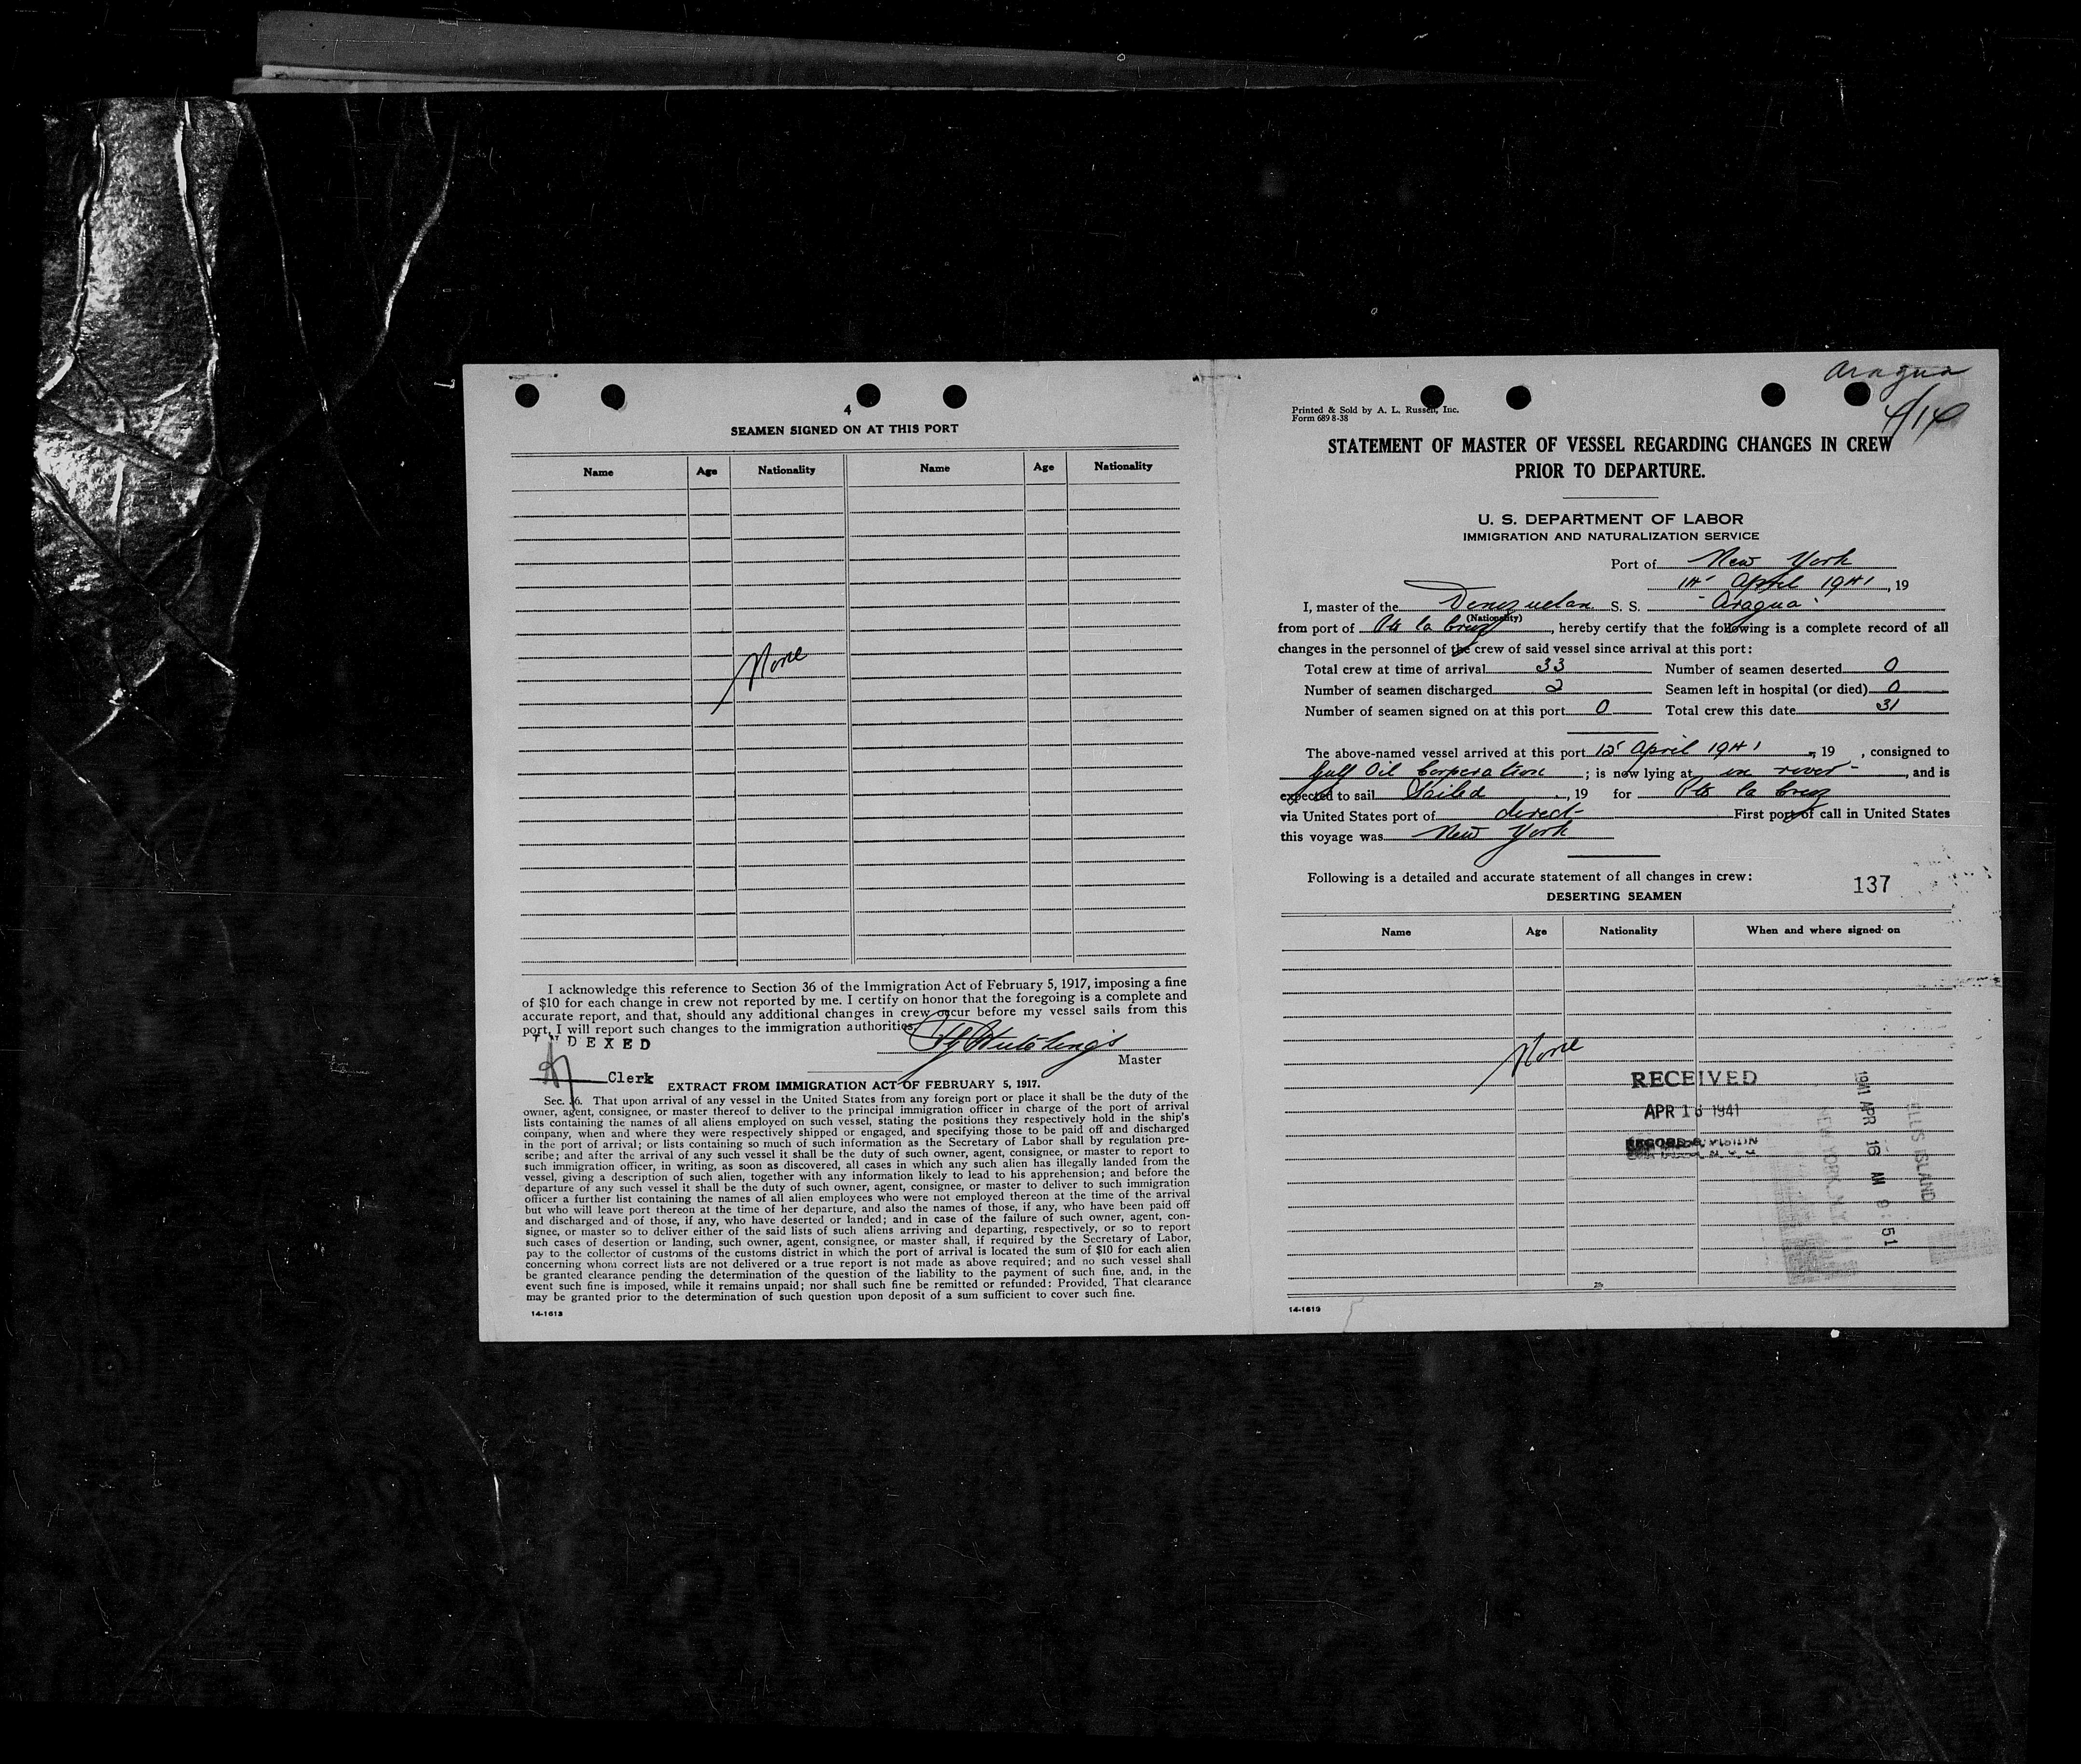 4
SEAMEN SIGNED ON AT THIS PORT
Name Age Nationality Name Age Nationality
None
I acknowledge this reference to Section 36 of the Immigration Act of February 5, 1917, imposing a fine
of $10 for each change in crew not reported by me. I certify on honor that the foregoing is a complete and
accurate report, and that, should any additional changes in crew occur before my vessel sails from this
port, I will report such changes to the immigration authorities.
INDEXED
Hutchings
Master
Clerk
EXTRACT FROM IMMIGRATION ACT OF FEBRUARY 5, 1917.
Sec. 36. That upon arrival of any vessel in the United States from any foreign port or place it shall be the duty of the
owner, agent, consignee, or master thereof to deliver to the principal immigration officer in charge of the port of arrival
lists containing the names of all aliens employed on such vessel, stating the positions they respectively hold in the ship's
company, when and where they were respectively shipped or engaged, and specifying those to be paid off and discharged
in the port of arrival; or lists containing so much of such information as the Secretary of Labor shall by regulation pre-
scribe; and after the arrival of any such vessel it shall be the duty of such owner, agent, consignee, or master to report to
such immigration officer, in writing, as soon as discovered, all cases in which any such alien has illegally landed from the
vessel, giving a description of such alien, together with any information likely to lead to his apprehension; and before the
departure of any such vessel it shall be the duty of such owner, agent, consignee, or master to deliver to such immigration
officer a further list containing the names of all alien employees who were not employed thereon at the time of the arrival
but who will leave port thereon at the time of her departure, and also the names of those, if any, who have been paid off
and discharged and of those, if any, who have deserted or landed; and in case of the failure of such owner, agent, con-
signee, or master so to deliver either of the said lists of such aliens arriving and departing, respectively, or so to report
such cases of desertion or landing, such owner, agent, consignee, or master shall, if required by the Secretary of Labor,
pay to the collector of customs of the customs district in which the port of arrival is located the sum of $10 for each alien
concerning whom correct lists are not delivered or a true report is not made as above required; and no such vessel shall
be granted clearance pending the determination of the question of the liability to the payment of such fine, and, in the
event such fine is imposed, while it remains unpaid; nor shall such fine be remitted or refunded: Provided, That clearance
may be granted prior to the determination of such question upon deposit of a sum sufficient to cover such fine.
14-1613
Aragua
4/14
Printed & Sold by A. L. Russell, Inc.
Form 689 8-38
STATEMENT OF MASTER OF VESSEL REGARDING CHANGES IN CREW
PRIOR TO DEPARTURE.
U. S. DEPARTMENT OF LABOR
IMMIGRATION AND NATURALIZATION SERVICE
Port of New York
14 April 1941, 19
I, master of the Venezuelan S. S. "Aragua"
(Nationality)
from port of Pto la Cruz, hereby certify that the following is a complete record of all
changes in the personnel of the crew of said vessel since arrival at this port:
Total crew at time of arrival 33 Number of seamen deserted 0
Number of seamen discharged 2 Seamen left in hospital (or died) 0
Number of seamen signed on at this port 0 Total crew this date 31
The above-named vessel arrived at this port 12 April 1941, 19 , consigned to
Gulf Oil Corporation ; is now lying at in river , and is
expected to sail Sailed , 19 for Pto la Cruz
via United States port of direct First port of call in United States
this voyage was New York
Following is a detailed and accurate statement of all changes in crew:
137
DESERTING SEAMEN
Name Age Nationality When and where signed on
None
RECEIVED
APR 16 1941
RECORD DIVISION
1941 APR 16 AM 9:51
ELLIS ISLAND
NEW YORK
14-1613